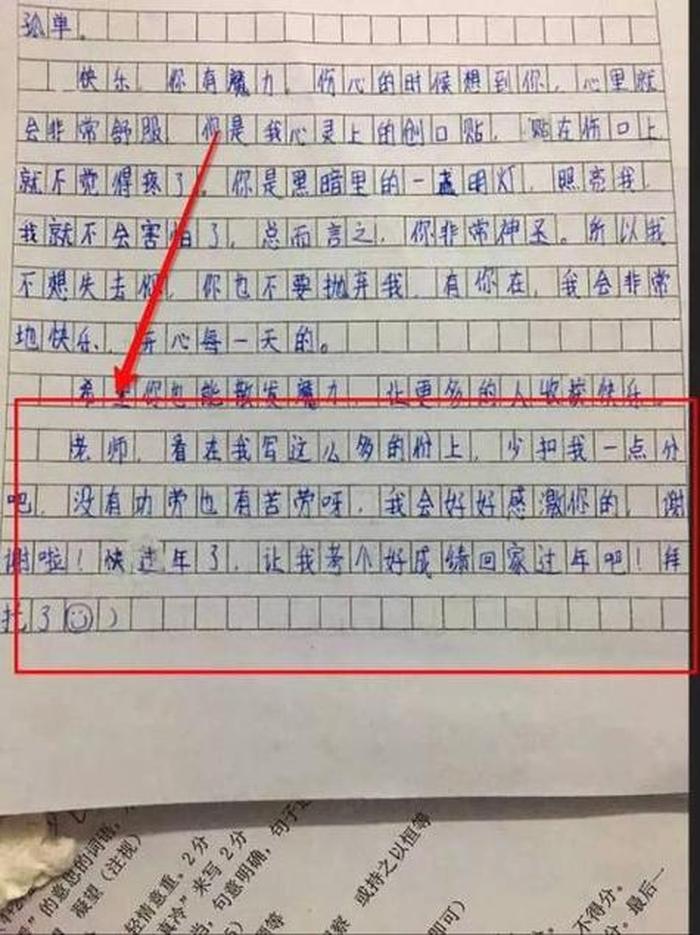 孤单。
快乐，你有魔力。伤心的时候想到你，心里就
会非常舒服，你是我心灵上的创口贴，贴在伤口上
就不觉得疼了。你是黑暗里的一盏明灯，照亮我，
我就不会害怕了。总而言之，你非常神圣。所以我
不想失去你，你也不要抛弃我，有你在，我会非常
地快乐、开心每一天的。
希望你也能散发魔力，让更多的人收获快乐。
老师，看在我写这么多的份上，少扣我一点分
吧，没有功劳也有苦劳呀，我会好好感激你的，谢
谢啦！快过年了，让我考个好成绩回家过年吧！拜
托了）
的意思的词语，
凝望（注视）
轻情意重。2分
真冷”来写 2分
当，句意明确，句子
等
察 或持之以恒等
即可）
不得分。
分。最后一